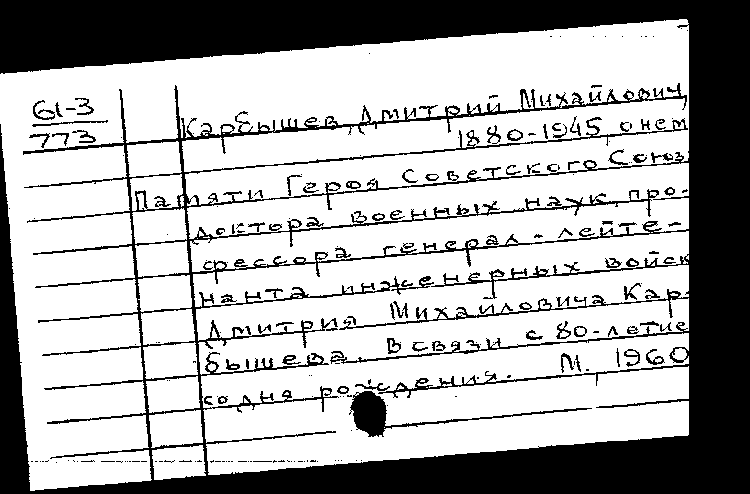 61-3
773
Карбышев, Дмитрий Михайлович,
1880-1945, о нем
Памяти Героя Советского Союза
доктора военных наук, про-
фессора генерал-лейте-
нанта инженерных войск
Дмитрия Михайловича Кар-
бышева. В связи с 80-летие
со дня рождения. М., 1960